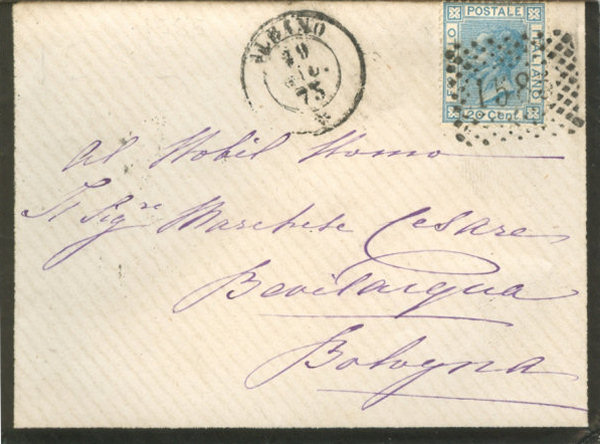 ALBINO
POSTALE
ITALIANO
20 Cent.
Al Nobil Homo
Il Sigre Marchese Cesare
Bevilacqua
Bologna